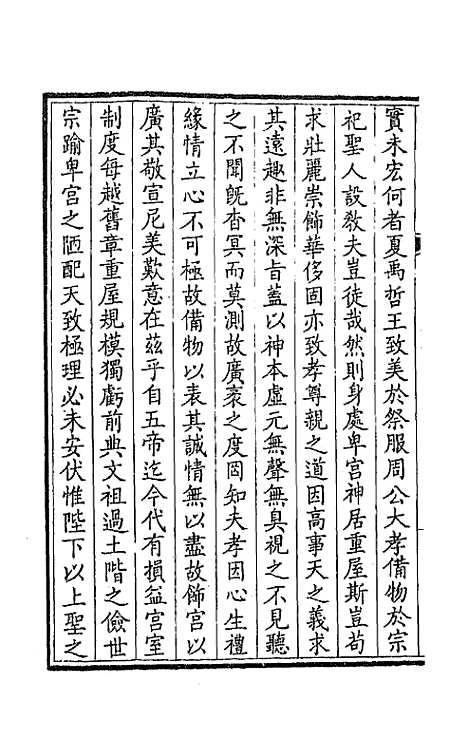 實未宏何者夏禹哲王致美於祭服周公大孝備物於宗
祀聖人設敎夫豈徒哉然則身處卑宫神居重屋斯豈苟
求壯麗崇飾華侈固亦致孝尊親之道因高事天之義求
其遠趣非無深旨蓋以神本虛元無聲無臭視之不見聽
之不聞旣杳冥而莫測故廣袤之度罔知夫孝因心生禮
緣情立心不可極故備物以表其誠情無以盡故飾宫以
廣其敬宣尼美歎意在茲乎自五帝迄今代有損益宫室
制度每越舊章重屋規模獨虧前典文祖過土階之儉世
宗踰卑宫之陋配天致極理必未安伏惟陛下以上聖之